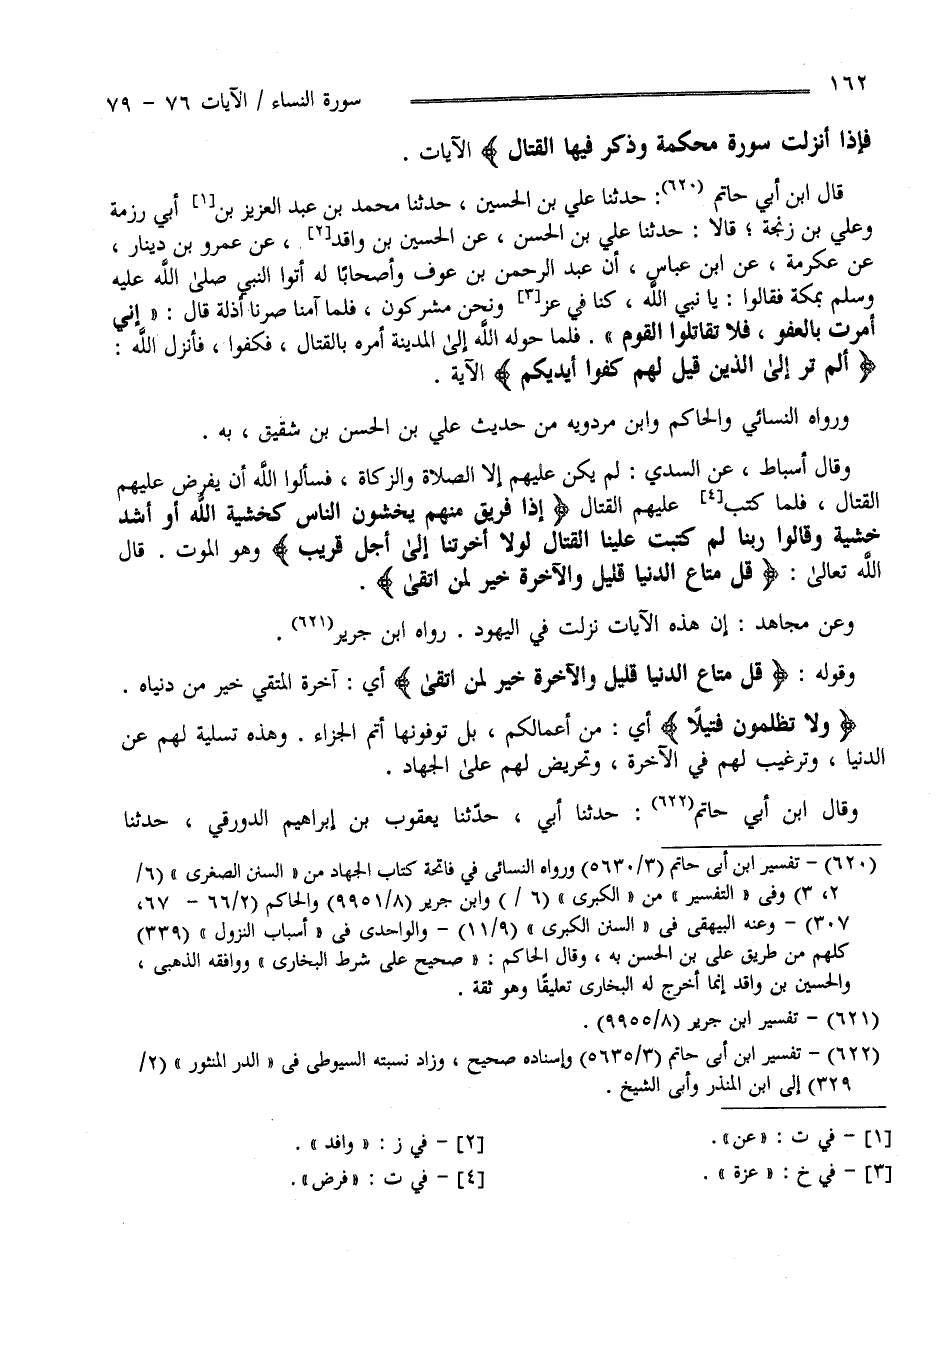 ١٦٢
سورة النساء / الآيات ٧٦ - ٧٩
فإذا أنزلت سورة محكمة وذكر فيها القتال ﴾ الآيات .
قال ابن أبي حاتم (٦٢٠): حدثنا علي بن الحسين ، حدثنا محمد بن عبد العزيز بن[١] أبي رزمة
وعلي بن زنجة ؛ قالا : حدثنا علي بن الحسن ، عن الحسين بن واقد[٢] ، عن عمرو بن دينار ،
عن عكرمة ، عن ابن عباس ، أن عبد الرحمن بن عوف وأصحابًا له أتوا النبي صلىٰ اللَّه عليه
وسلم بمكة فقالوا : يا نبي اللَّه ، كنا في عز[٣] ونحن مشركون ، فلما آمنا صرنا أذلة قال : « إني
أمرت بالعفو ، فلا تقاتلوا القوم » . فلما حوله اللَّه إلىٰ المدينة أمره بالقتال ، فكفوا ، فأنزل اللَّه :
﴿ ألم تر إلىٰ الذين قيل لهم كفوا أيديكم ﴾ الآية .
ورواه النسائي والحاكم وابن مردويه من حديث علي بن الحسن بن شقيق ، به .
وقال أسباط ، عن السدي : لم يكن عليهم إلا الصلاة والزكاة ، فسألوا اللَّه أن يفرض عليهم
القتال ، فلما كتب[٤] عليهم القتال ﴿ إذا فريق منهم يخشون الناس كخشية اللَّه أو أشد
خشية وقالوا ربنا لم كتبت علينا القتال لولا أخرتنا إلىٰ أجل قريب ﴾ وهو الموت . قال
اللَّه تعالىٰ : ﴿ قل متاع الدنيا قليل والآخرة خير لمن اتقىٰ ﴾ .
وعن مجاهد : إن هذه الآيات نزلت في اليهود . رواه ابن جرير(٦٢١) .
وقوله : ﴿ قل متاع الدنيا قليل والآخرة خير لمن اتقىٰ ﴾ أي : آخرة المتقي خير من دنياه .
﴿ ولا تظلمون فتيلًا ﴾ أي : من أعمالكم ، بل توفونها أتم الجزاء . وهذه تسلية لهم عن
الدنيا ، وترغيب لهم في الآخرة ، وتحريض لهم علىٰ الجهاد .
وقال ابن أبي حاتم(٦٢٢) : حدثنا أبي ، حدّثنا يعقوب بن إبراهيم الدورقي ، حدثنا
(٦٢٠) - تفسير ابن أبى حاتم (٥٦٣٠/٣) ورواه النسائي في فاتحة كتاب الجهاد من « السنن الصغرى » (٦/
٢، ٣) وفى « التفسير » من « الكبرى » (٦ / ) وابن جرير (٩٩٥١/٨) والحاكم (٦٦/٢ - ٦٧،
٣٠٧) - وعنه البيهقى فى « السنن الكبرى » (١١/٩) - والواحدى فى « أسباب النزول » (٣٣٩)
كلهم من طريق على بن الحسن به ، وقال الحاكم : « صحيح على شرط البخارى » ووافقه الذهبى ،
والحسين بن واقد إنما أخرج له البخارى تعليقًا وهو ثقة .
(٦٢١) - تفسير ابن جرير (٩٩٥٥/٨) .
(٦٢٢) - تفسير ابن أبى حاتم (٥٦٣٥/٣) وإسناده صحيح ، وزاد نسبته السيوطى فى « الدر المنثور » (٢/
٣٢٩) إلى ابن المنذر وأبى الشيخ .
[١] - في ت : «عن».
[٢] - في ز : « وافد » .
[٣] - في خ : « عزة » .
[٤] - في ت : «فرض».